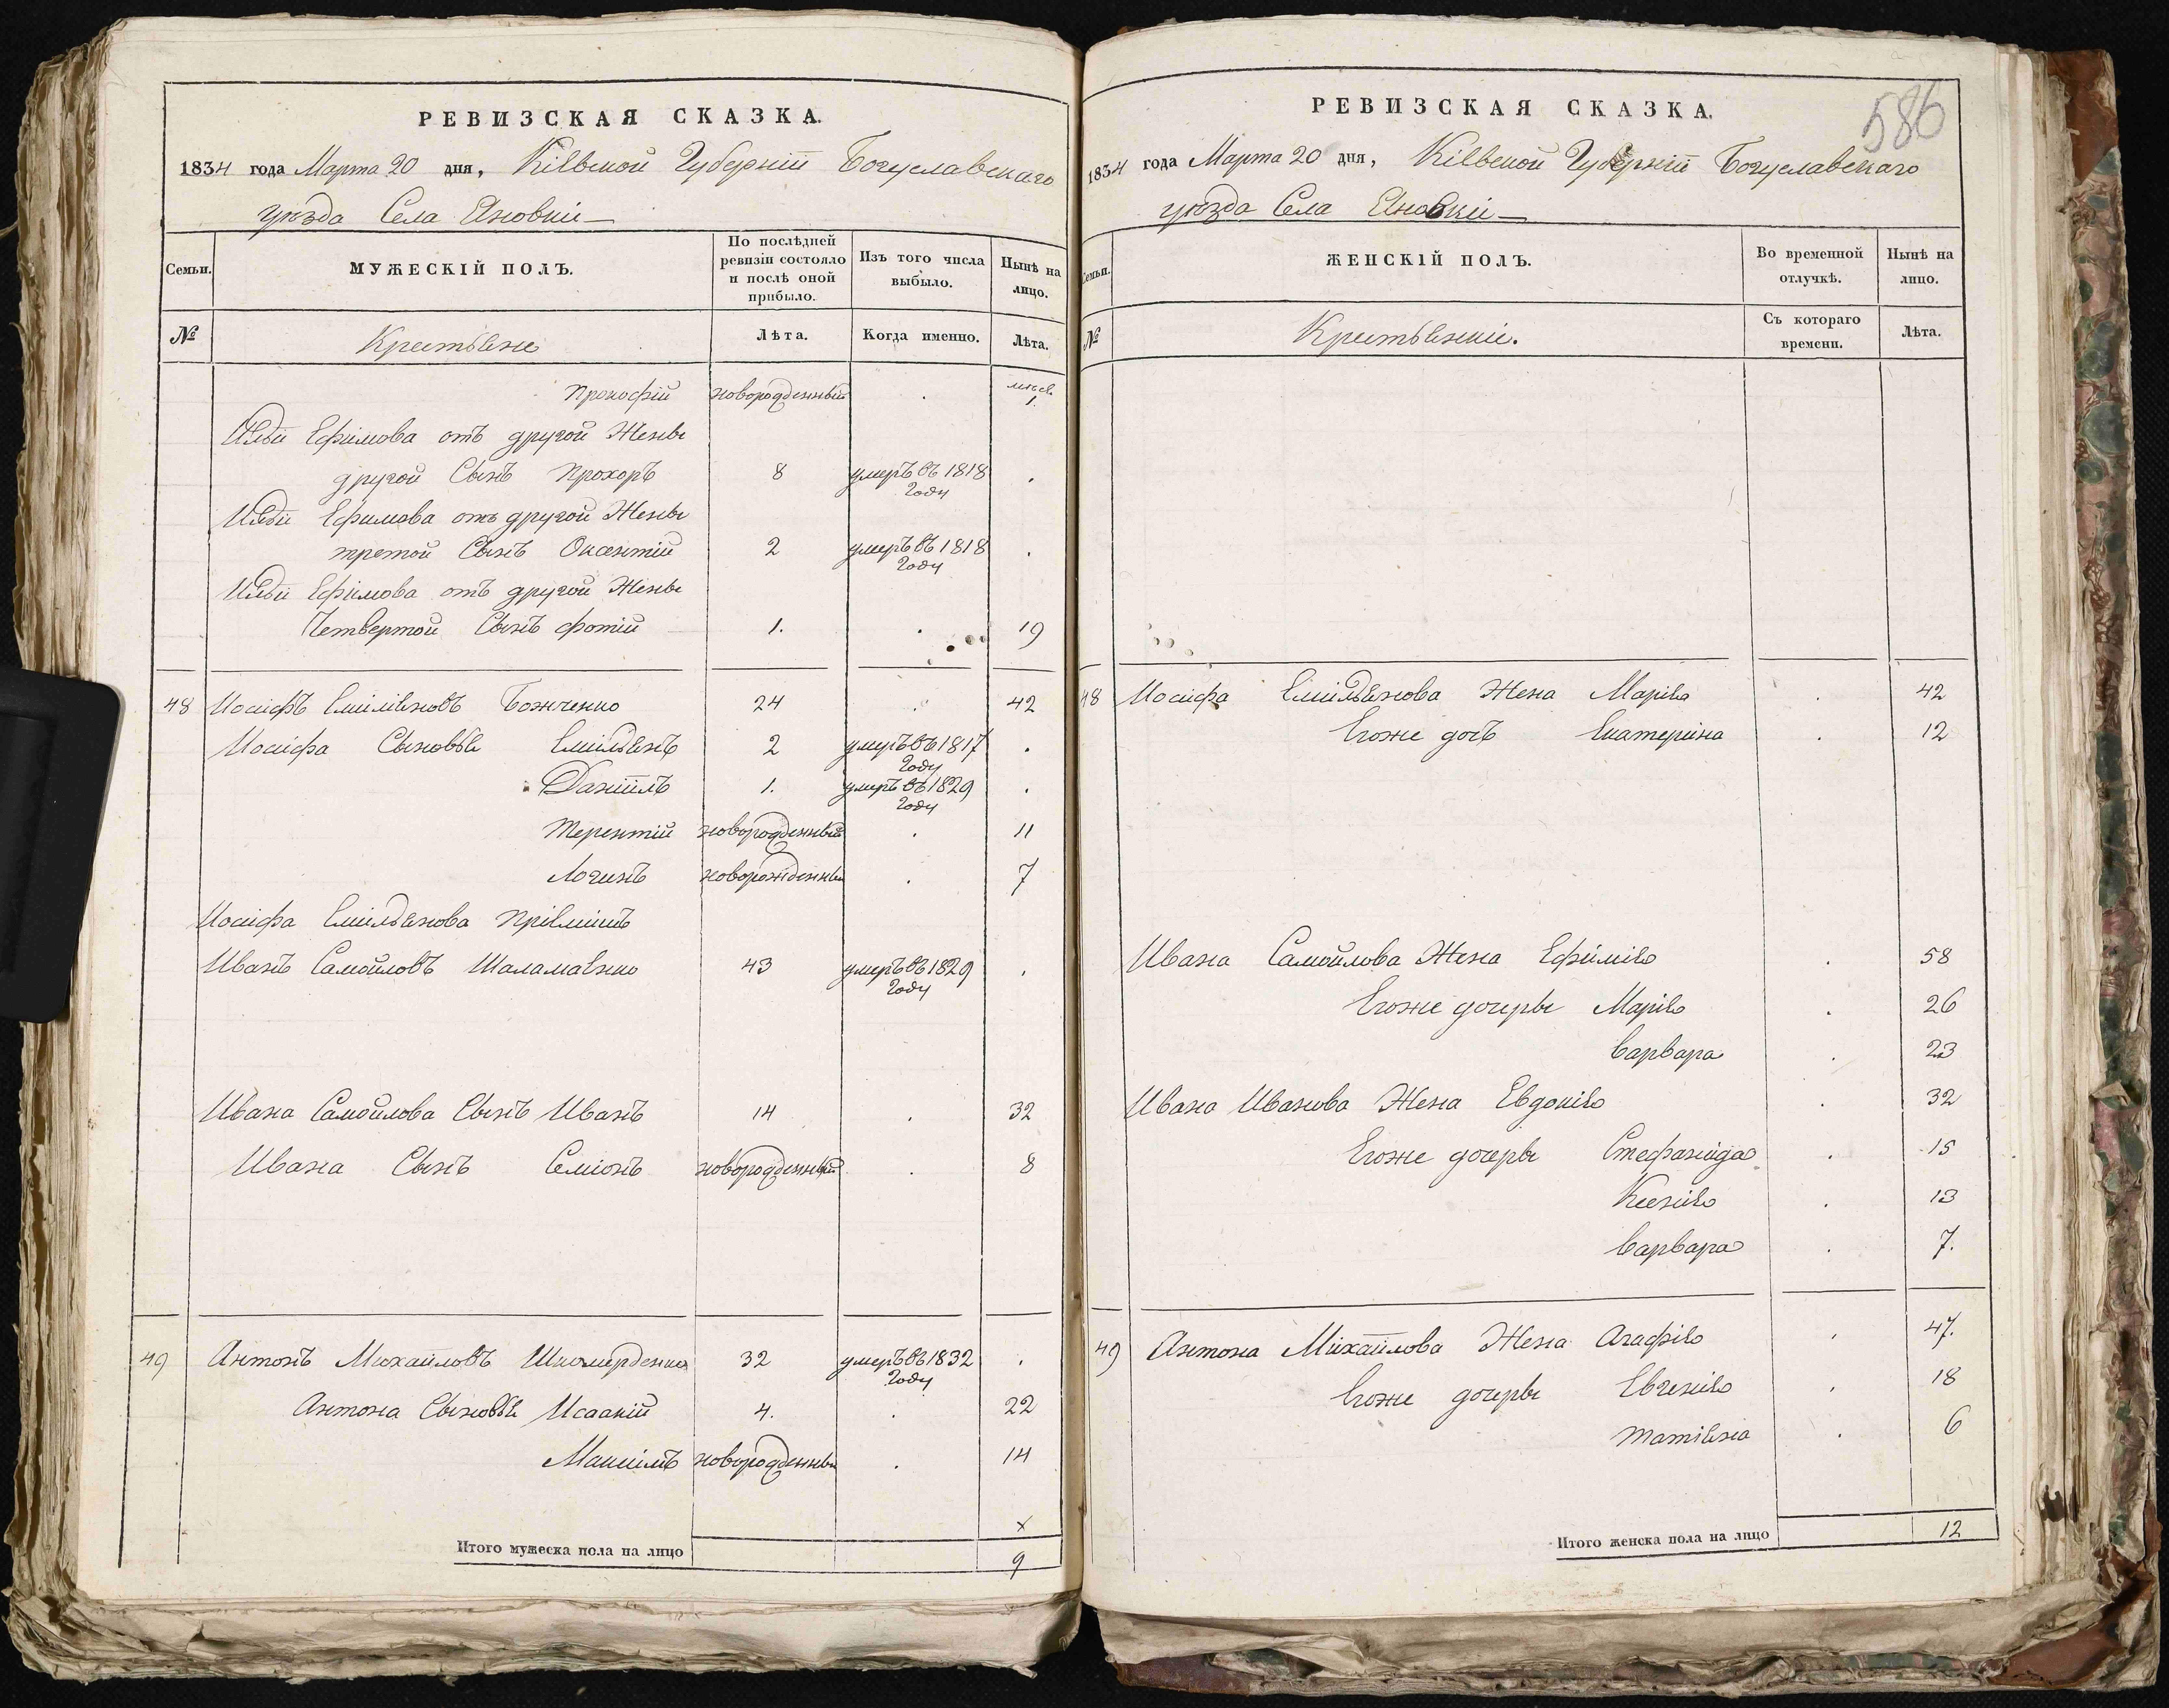 РЕВИЗСКАЯ СКАЗКА.
1834 года Марта 20 дня, Кіевской Губерніи Богуславскаго
уѣзда Села Яновки
Семьи. МУЖЕСКІЙ ПОЛЪ. По послѣдней ревизіи состояло и послѣ оной прибыло. Изъ того числа выбыло. Нынѣ на лицо.
№ Крестьяне Лѣта. Когда именно. Лѣта.
Прокофій новорожденный . 1.
Ильи Ефимова отъ другой Жены
другой Сынъ Прохоръ 8 умеръ въ 1818 Году .
Ильи Ефимова отъ другой Жены
третой Сынъ Оксентій 2 умеръ въ 1818 Году .
Ильи Ефимова отъ другой Жены
Четвертой Сынъ Фотій 1. . 19
48 Иосифъ Емиліяновъ Божченко 24 . 42
Иосифа Сыновья Емильянъ 2 умеръ въ 1817 Году .
Даніилъ 1. умеръ въ 1829 Году .
Терентій новорожденный . 11
Логинъ новорожденный . 7
Иосифа Емильянова Пріемишъ
Иванъ Самойловъ Шаламаенко 43 умеръ въ 1829 Году .
Ивана Самойлова Сынъ Иванъ 14 . 32
Ивана Сынъ Семіонъ новорожденный . 8
49 Антонъ Михайловъ 32 умеръ въ 1832 Году .
Антона Сыновья Исаакій 4. . 22
Максимъ новорожденный . 14
х
Итого мужеска пола на лицо 9
586
РЕВИЗСКАЯ СКАЗКА.
1834 года Марта 20 дня, Кіевской Губерніи Богуславскаго
уѣзда Села Яновки
Семьи. ЖЕНСКІЙ ПОЛЪ. Во временной отлучкѣ. Нынѣ на лицо.
№ Крестьянки. Съ котораго времени. Лѣта.
48 Иосифа Емильянова Жена Марія . 42
Егоже дочь Екатерина . 12
Ивана Самойлова Жена Ефимія . 58
Егоже дочеры Марія . 26
Варвара . 23
Ивана Иванова Жена Евдокія . 32
Егоже дочеры Стефанида . 15
Ксенія . 13
Варвара . 7.
49 Антона Михайлова Жена Агафія . 47.
Егоже дочеры Евгенія . 18
Татіяна . 6
Итого женска пола на лицо 12